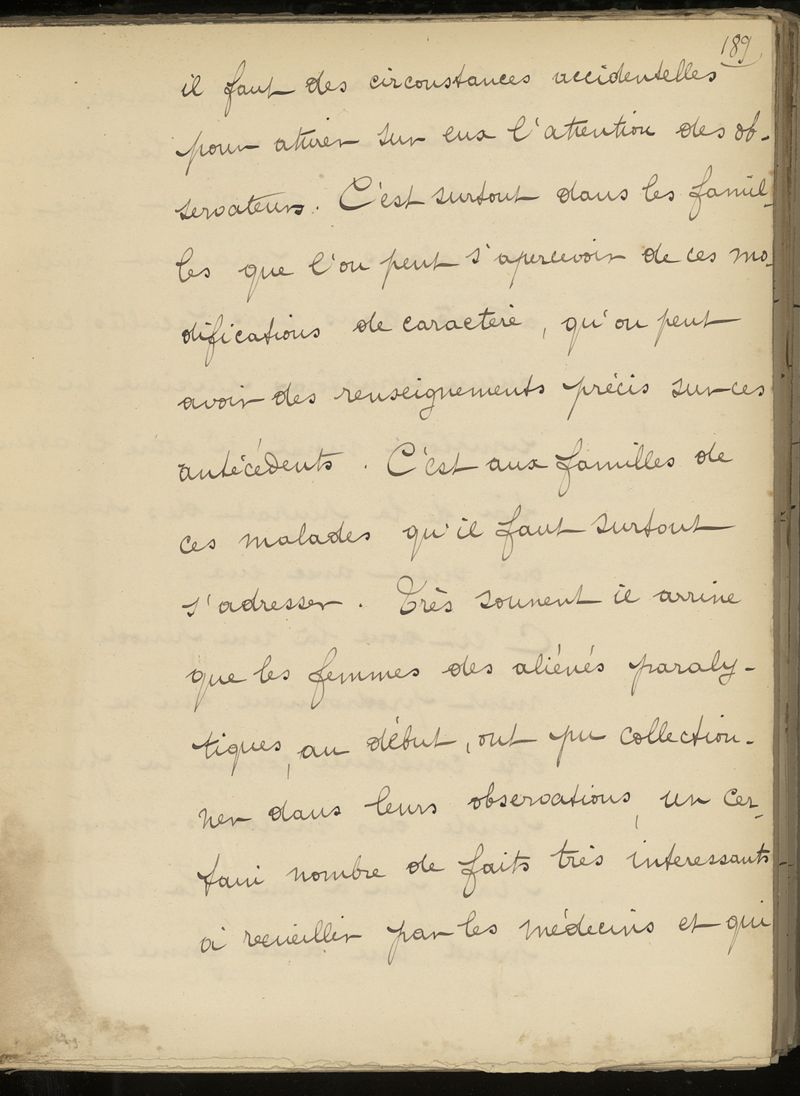 189
il faut des circonstances accidentelles
pour attirer sur eux l'attention des ob-
servateurs. C'est surtout dans les famil-
les que l'on peut s'apercevoir de ces mo-
difications de caractère, qu'on peut
avoir des renseignements précis sur ces
antécédents. C'est aux familles de
ces malades qu'il faut surtout
s'adresser. Très souvent il arrive
que les femmes des aliénés paraly-
tiques, au début, ont pu collection-
ner dans leurs observations, un cer-
tain nombre de faits très interessants
à recueillir par les médecins et qui